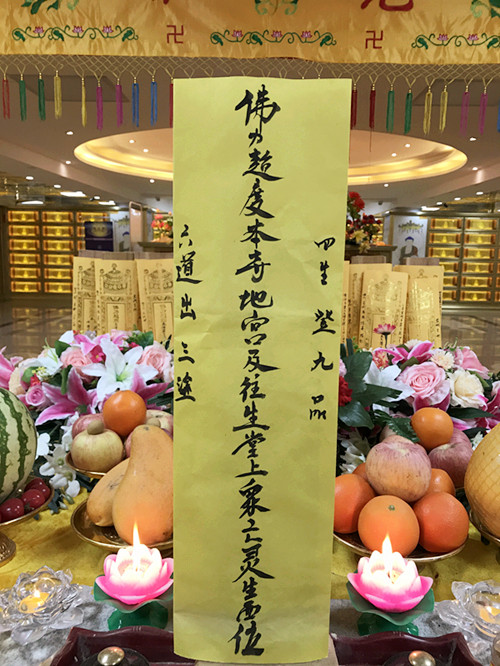 四生登九品
佛力超度本寺地宫及往生堂上眾亡灵生西位
六道出三塗